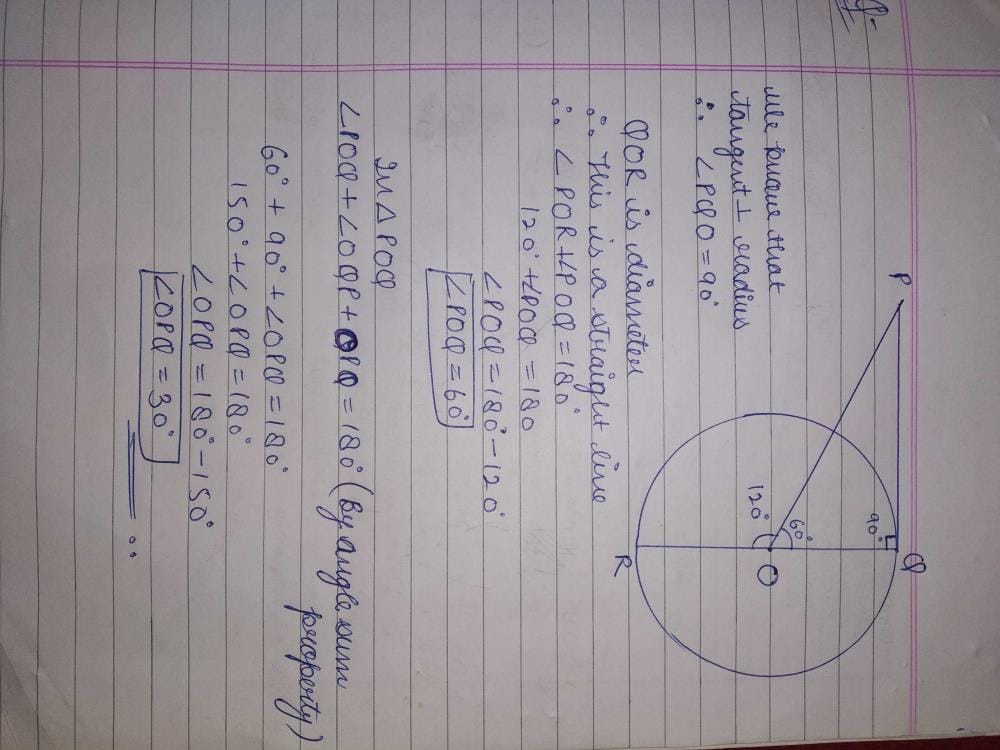 Q.
P
Q
90°
60°
120°
O
R
We prove that
tangent ⊥ radius
∴ ∠PQO = 90°
QOR is diameter
∴ This is a straight line
∴ ∠POR + ∠POQ = 180°
120° + ∠POQ = 180
∠POQ = 180° - 120°
∠POQ = 60°
In △POQ
∠POQ + ∠OQP + OPQ = 180° (By angle sum
property)
60° + 90° + ∠OPQ = 180°
150° + ∠OPQ = 180°
∠OPQ = 180° - 150°
∠OPQ = 30°